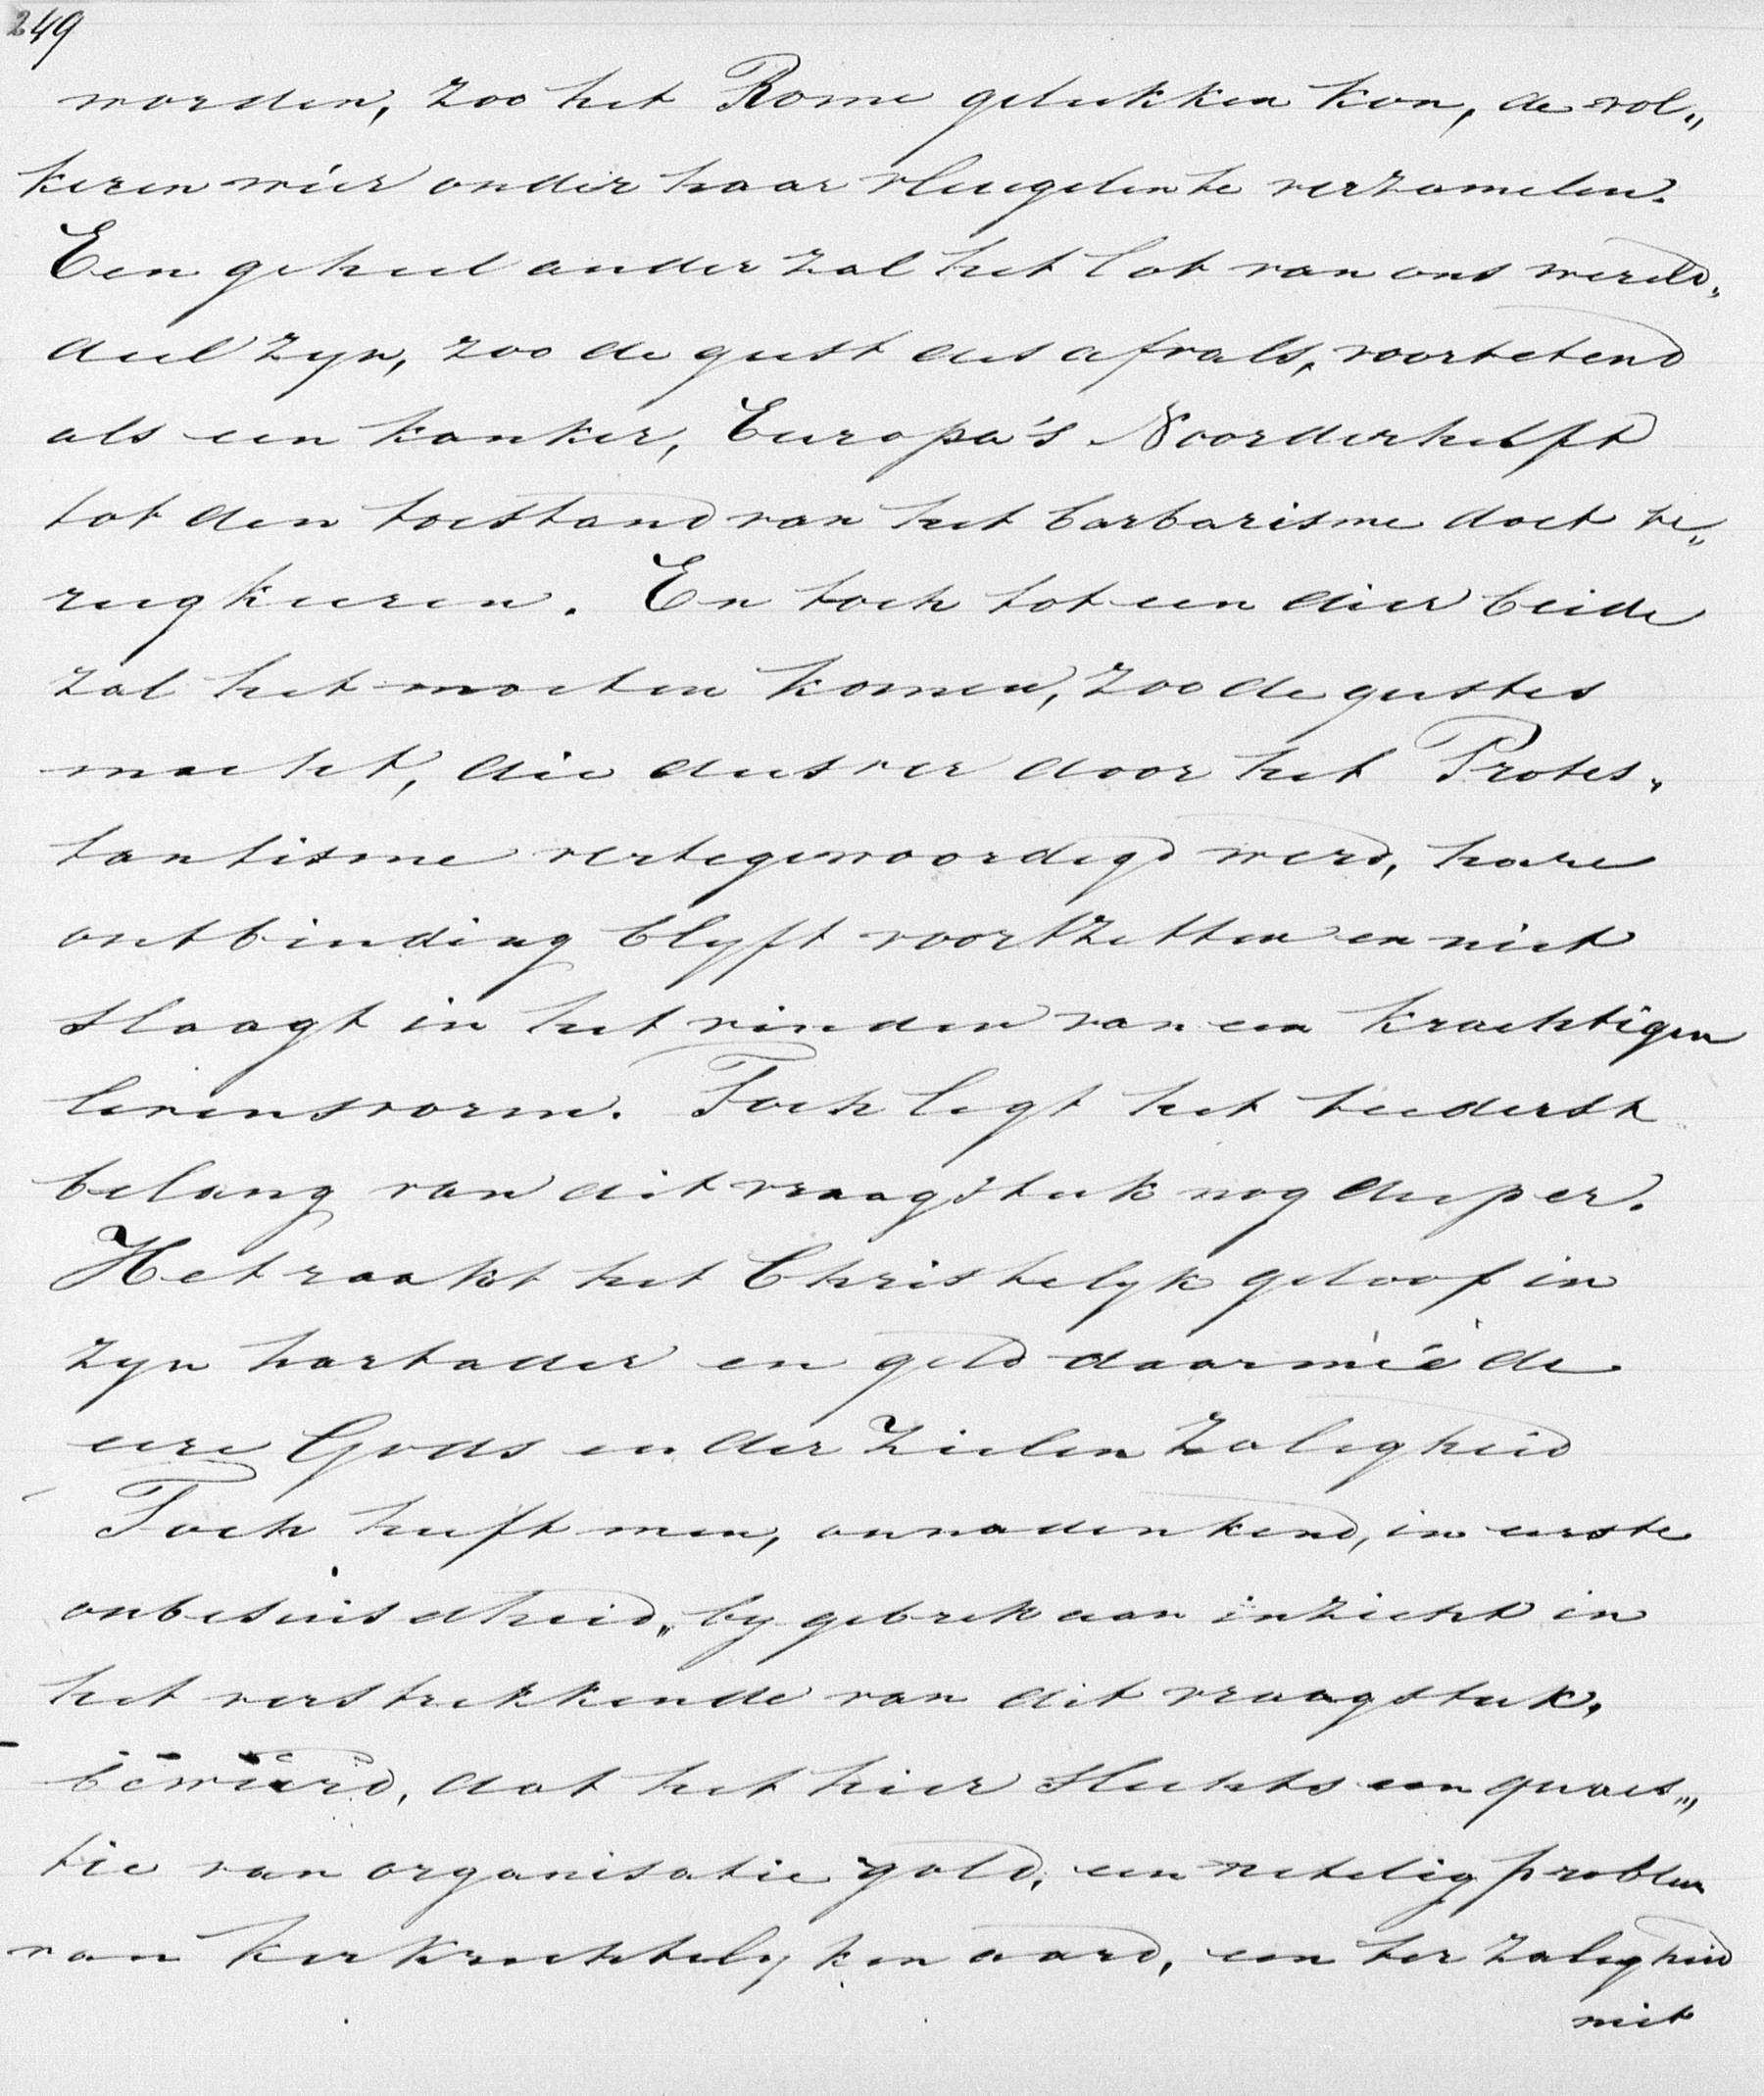 249
worden, zoo het Rome gelukken kon, de vol„
keren wéér onder haar vleugelen te verzamelen.
Een geheel ander zal het lot van ons wereld„
deel zyn, zoo de geest des afvals, voortetend
als een kanker, Europa's Noorderhelft
tot den toestand van het barbarisme doet te„
rugkeeren. En toch tot een dier beide
zal het moeten komen, zoo de geestes
macht, die dusver door het Protes„
tantisme vertegenwoordigd werd, hare
ontbinding blyft voortzetten en niet
slaagt in het vinden van een krachtigen
levensvorm. Toch ligt het teederst
belang van dit vraagstuk nog dieper.
Het raakt het Christelyk geloof in
zyn hartader en geld daarméé de
eere Gods en der Zielen Zaligheid
Toch heeft men, onnadenkend, in eerste
onbesuisdheid„ by gebrek aan inzicht in
het verstrekkende van dit vraagstuk,
beweerd, dat het hier slechts een quaes„
tie van organisatie gold, een netelig probleem
van kerkrechtelyken aard, een ter zaligheid
niet